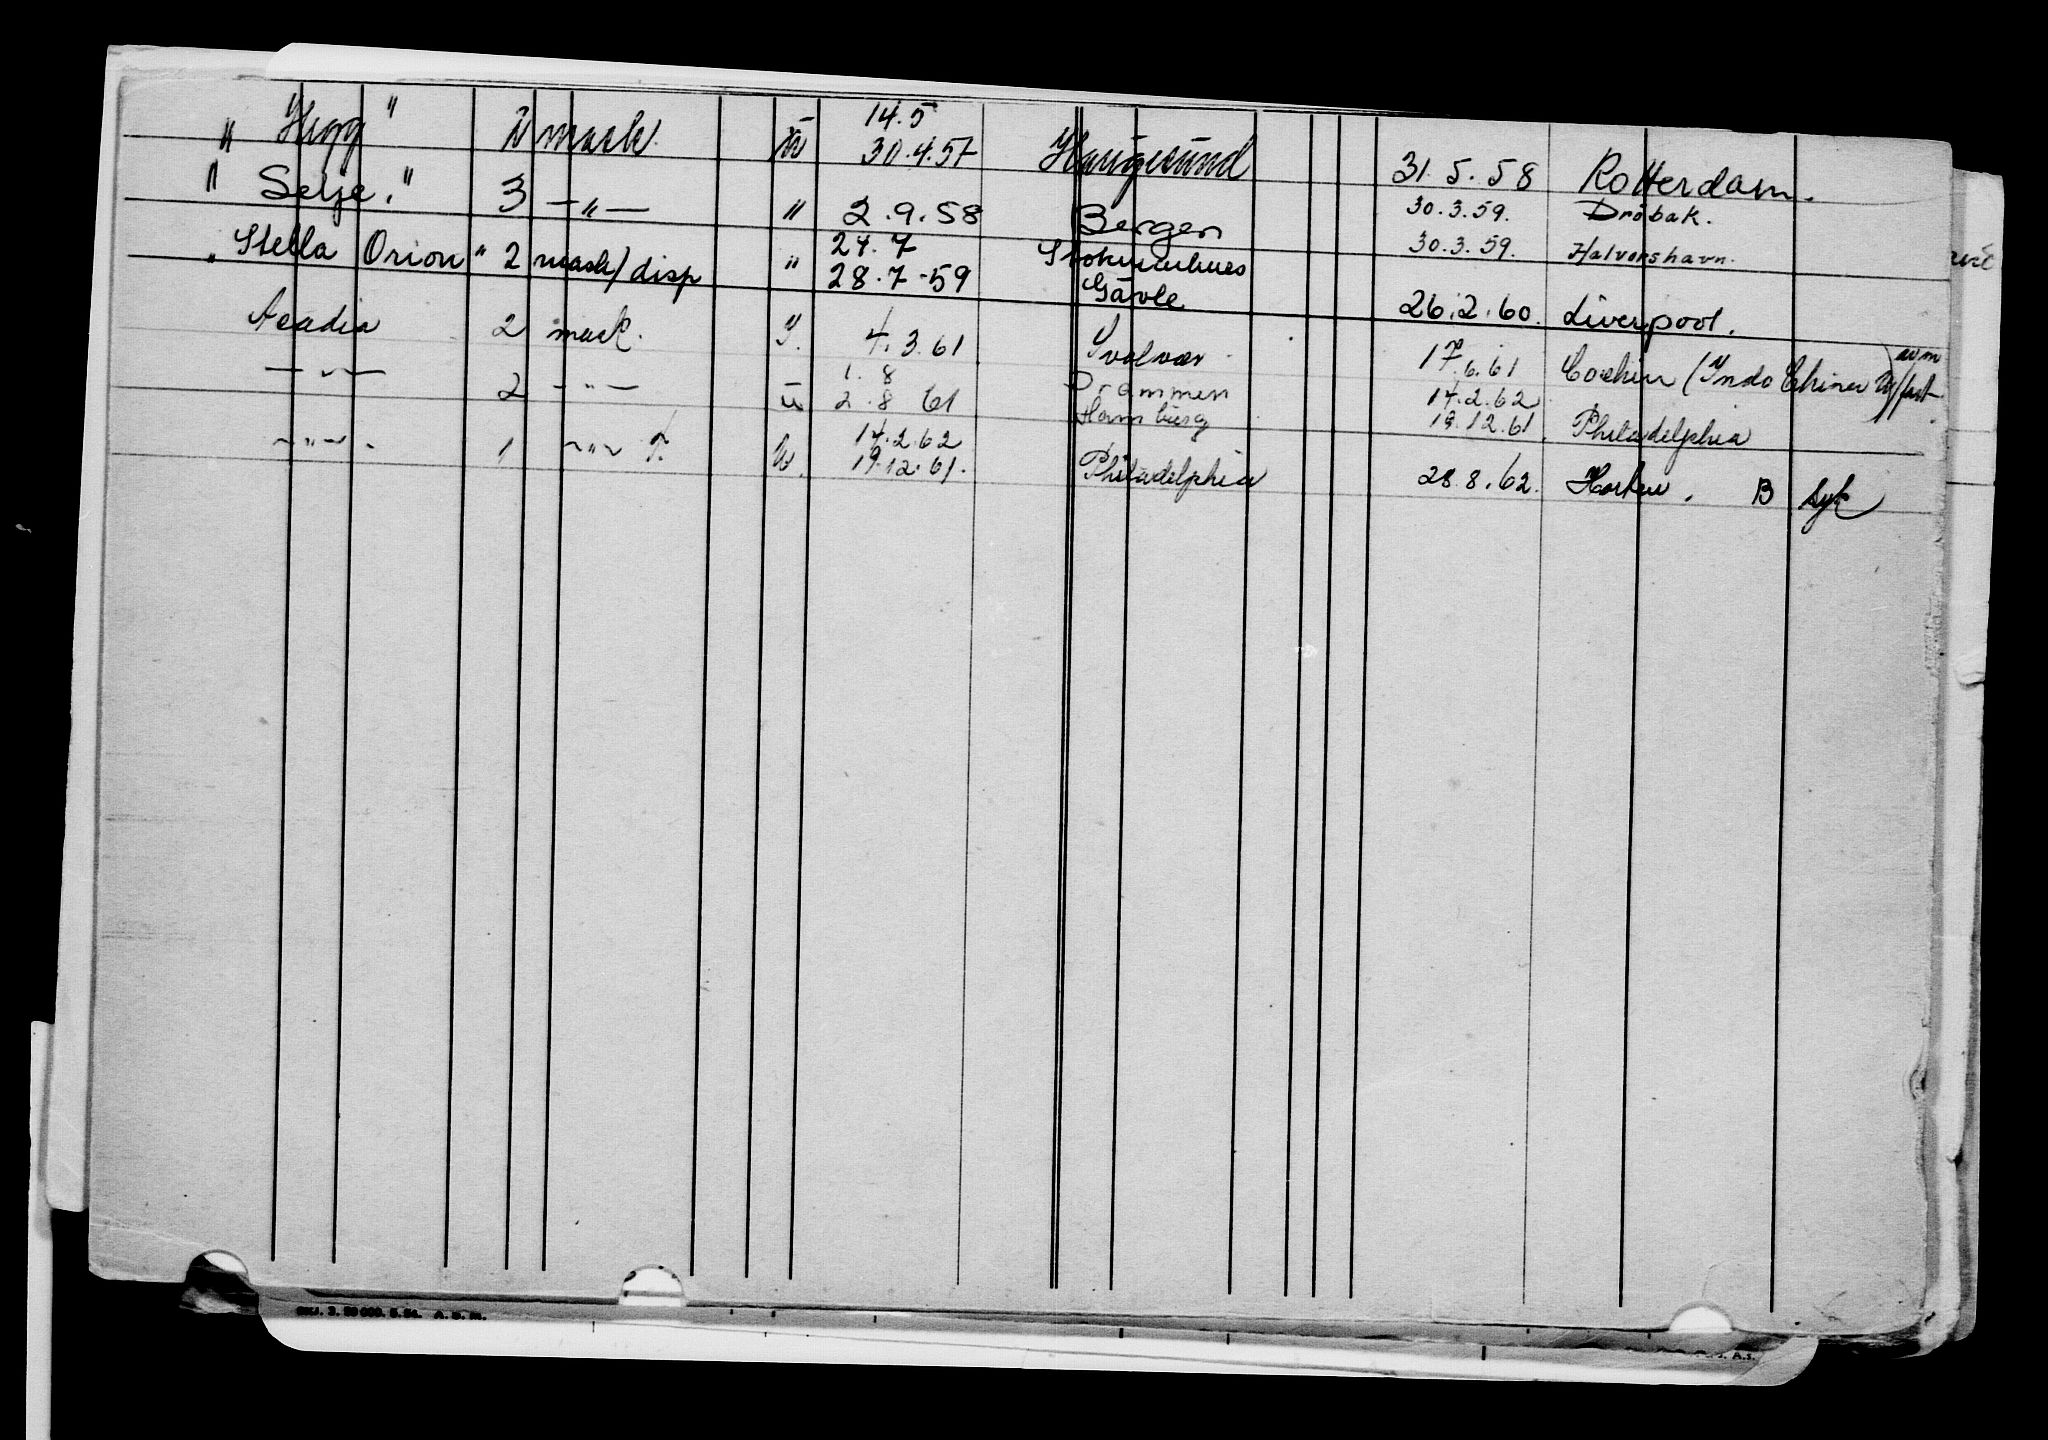 14.5
" Hugg " 2 mask. u 30.4.57 Haugesund 31.5.58 Rotterdam.
" Selje. " 3 —"— " 2.9.58 Bergen 30.3.59. Drøbak.
27.7 30.3.59. Halvorshavn.
" Stella Orion " 2 mask/disp " 28.7-59 Gävle 26.2.60. Liverpool.
Acadia 2 mask. 4.3.61 Svolvær 17.6.61 Cochin (Indo China)
1.8 Drammen 14.2.62
—"— 2 —"— u 2.8 61 Hamburg 19.12.61. Philadelphia
14.2.62
—"— . 1 —"— u. 19.12.61. Philadelphia 28.8.62. B syk